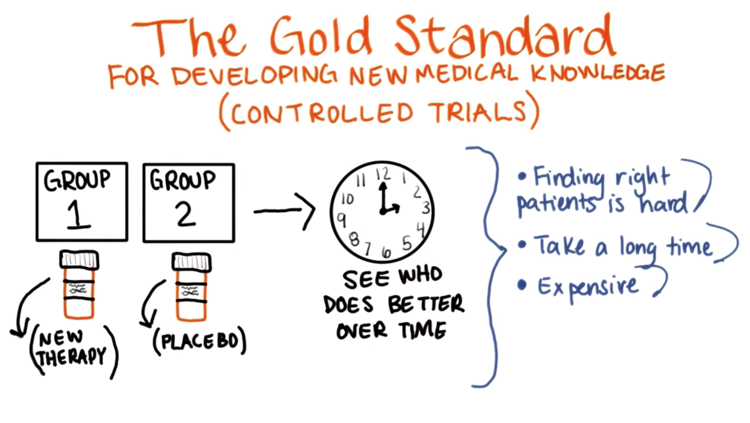 The Gold Standard
FOR DEVELOPING NEW MEDICAL KNOWLEDGE
(CONTROLLED TRIALS)
GROUP
1
GROUP
2
(NEW
THERAPY)
(PLACEBO)
12
1
2
3
4
5
6
7
8
9
10
11
SEE WHO
DOES BETTER
OVER TIME
• Finding right
patients is hard
• Take a long time
• Expensive